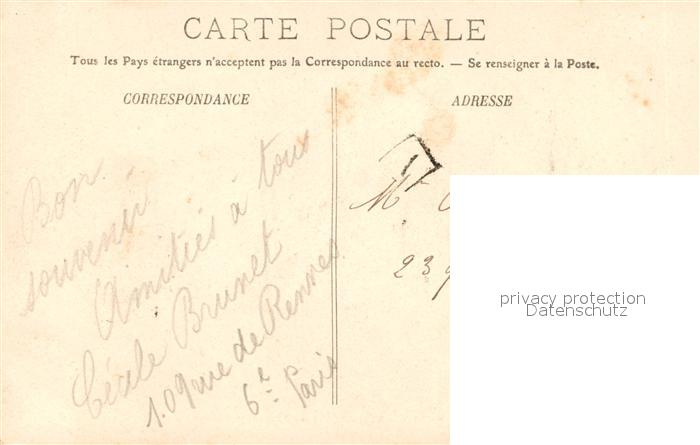 CARTE POSTALE
Tous les Pays étrangers n'acceptent pas la Correspondance au recto. — Se renseigner à la Poste.
CORRESPONDANCE
ADRESSE
Bon
souvenir
Amitiés à tous
Cécile Brunet
109 rue de Rennes
6e Paris
Mr
23
privacy protection
Datenschutz